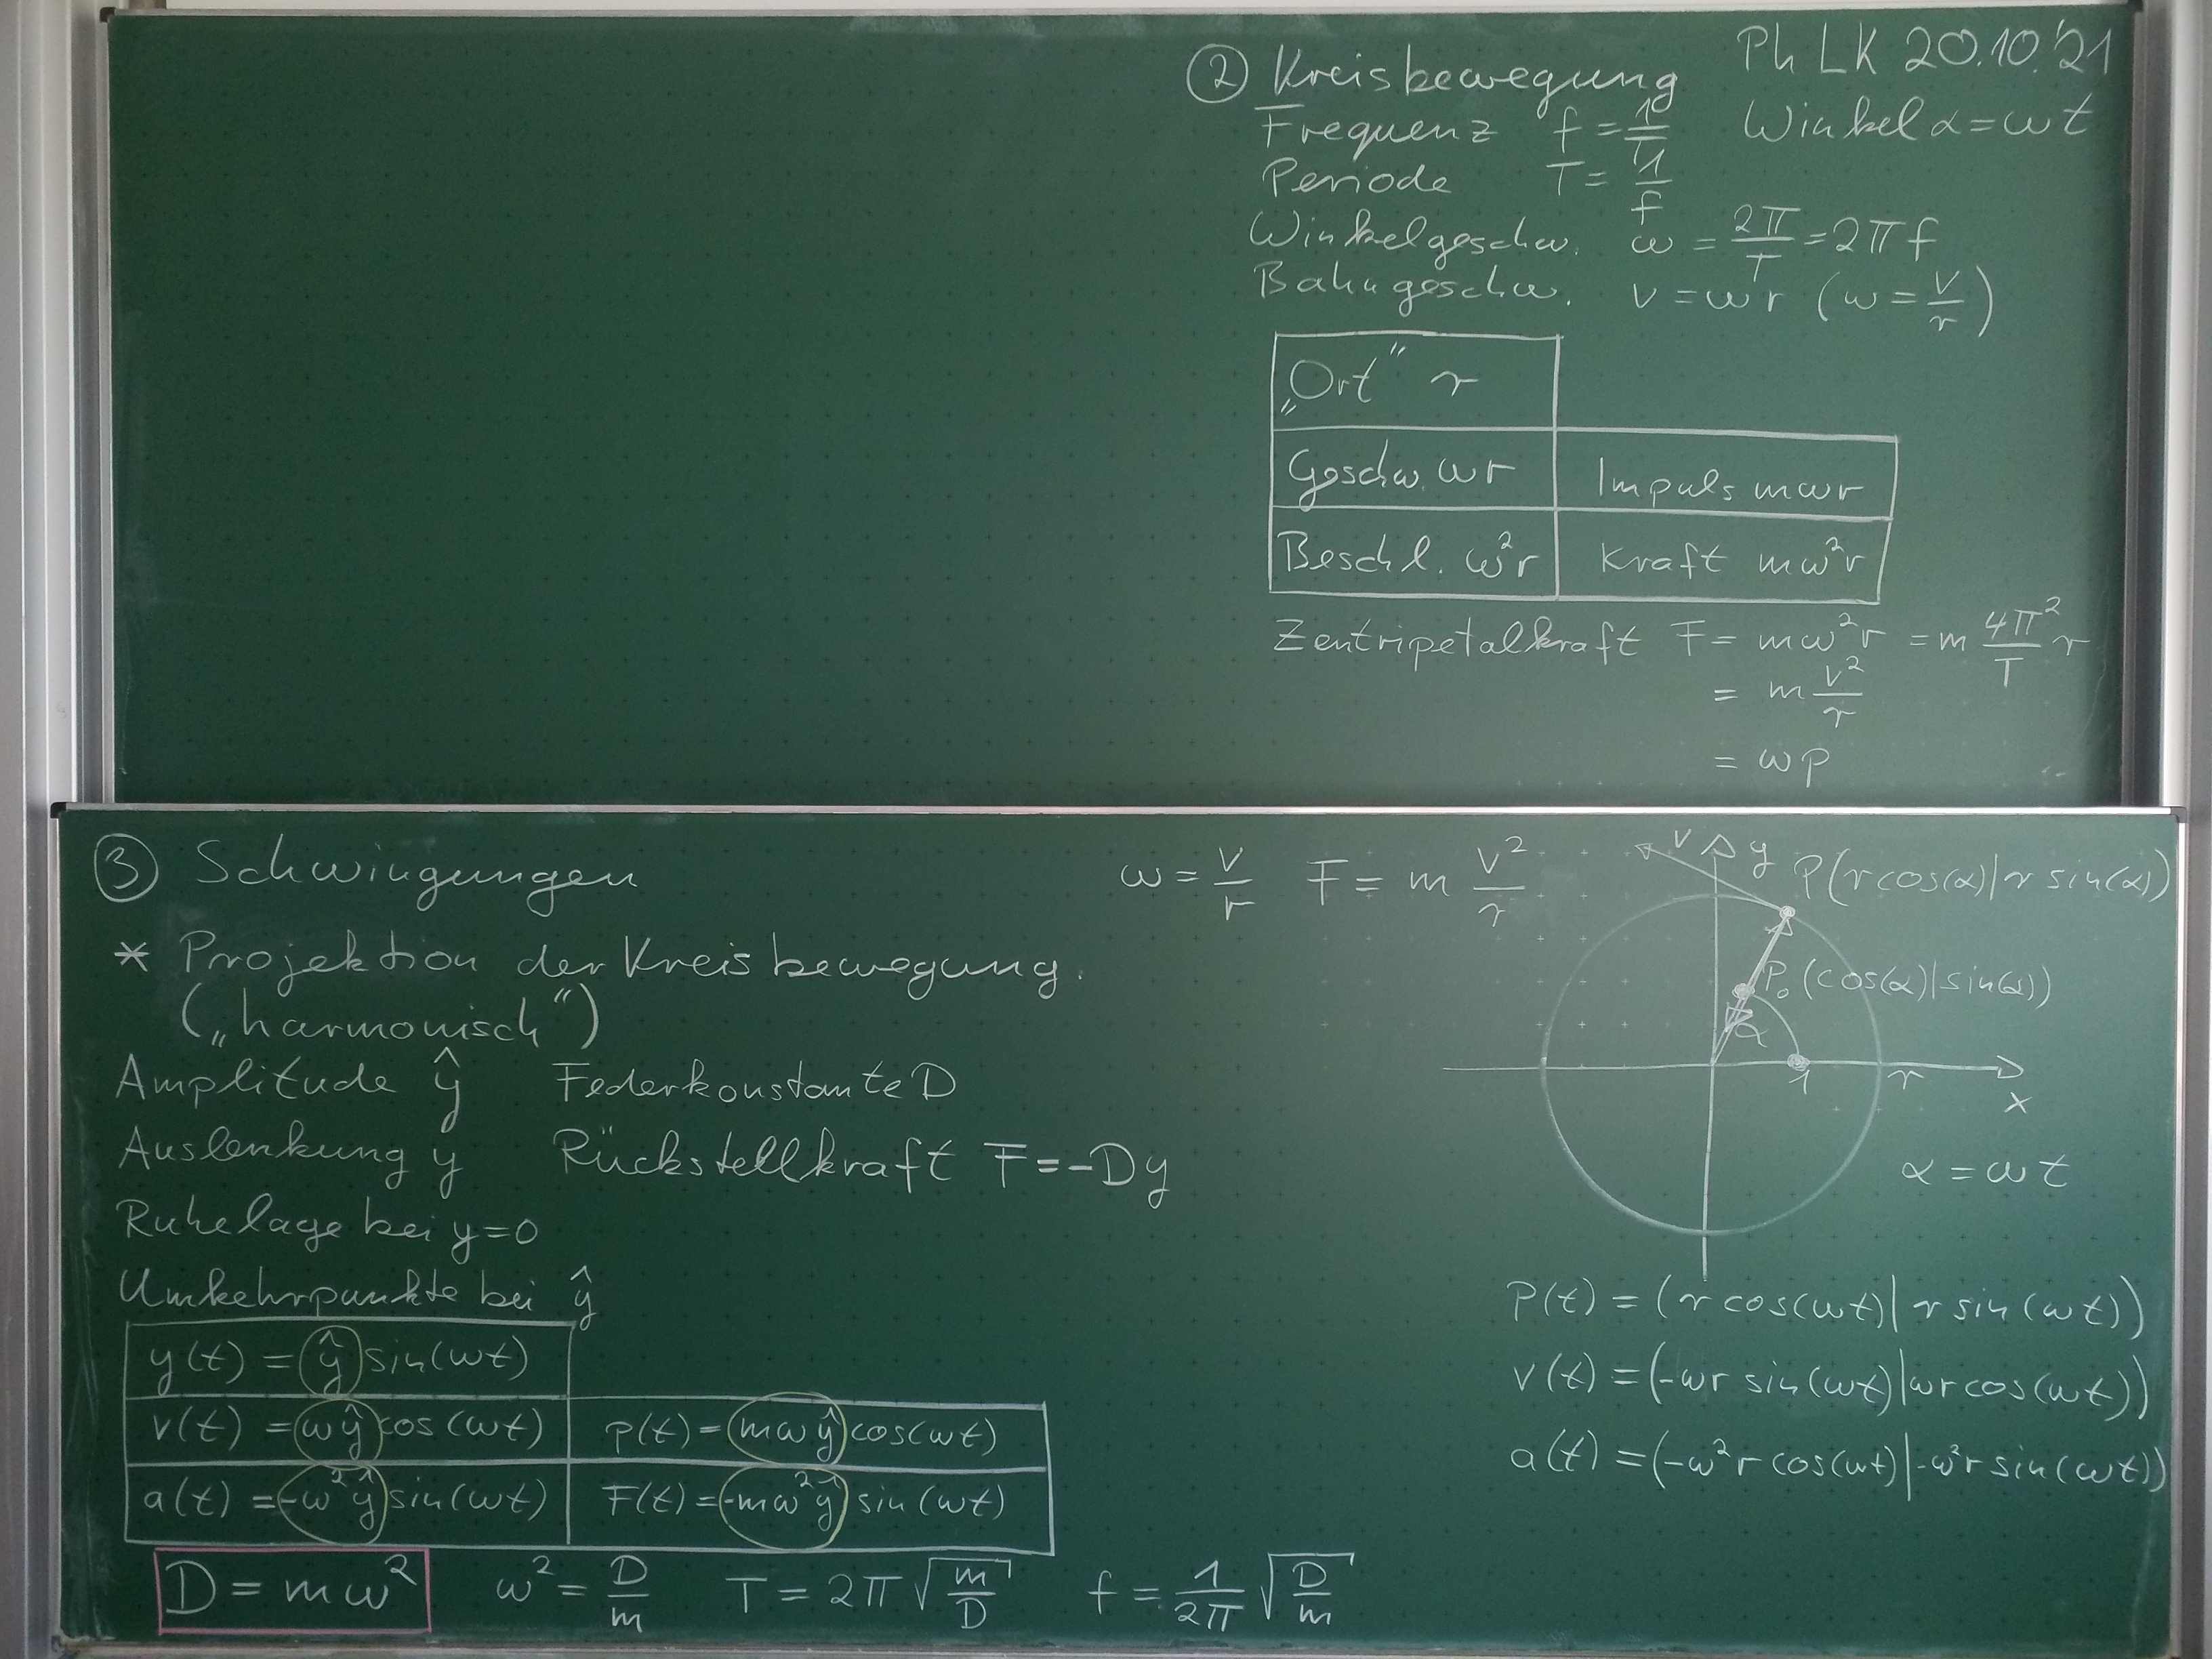 Ph LK 20.10.'21
② Kreisbewegung
Frequenz f = 1/T
Winkel α = ωt
Periode T = 1/f
Winkelgeschw. ω = 2π/T = 2πf
Bahngeschw. v = ωr (ω = v/r)
„Ort" r
Geschw. ωr
Impuls mωr
Beschl. ω²r
Kraft mω²r
Zentripetalkraft F = mω²r = m 4π²/T r
= m v²/r
= ωp
③ Schwingungen
* Projektion der Kreisbewegung.
(„harmonisch")
Amplitude ŷ
Federkonstante D
Auslenkung y
Rückstellkraft F = -Dy
Ruhelage bei y=0
Umkehrpunkte bei ŷ
y(t) = ŷ sin(ωt)
v(t) = ωŷ cos(ωt)
p(t) = mωŷ cos(ωt)
a(t) = -ω²ŷ sin(ωt)
F(t) = -mω²ŷ sin(ωt)
D = mω²
ω² = D/m
T = 2π√(m/D)
f = 1/2π √(D/m)
ω = v/r
F = m v²/r
v
y
P(r cos(α)|r sin(α))
P₀(cos(α)|sin(α))
α
1
r
x
α = ωt
P(t) = (r cos(ωt)|r sin(ωt))
v(t) = (-ωr sin(ωt)|ωr cos(ωt))
a(t) = (-ω²r cos(ωt)|-ω²r sin(ωt))